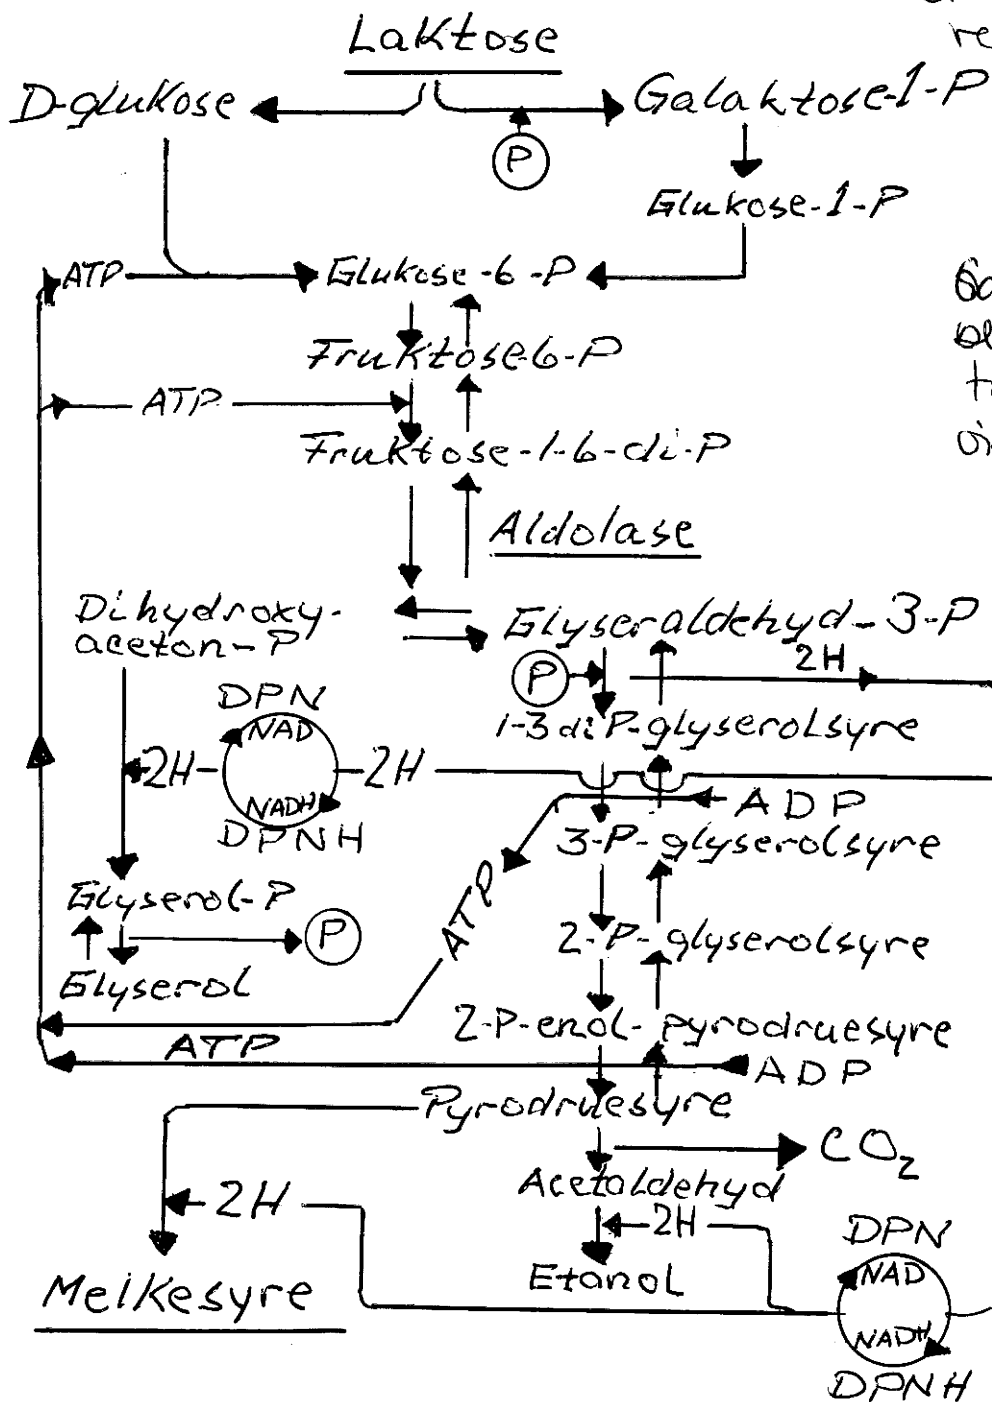 Laktose
re
D-glukose
Galaktose-1-P
P
Glukose-1-P
ATP
Glukose-6-P
Fruktose-6-P
ATP
Fruktose-1-6-di-P
Aldolase
Dihydroxy-
aceton-P
Glyseraldehyd-3-P
2H
P
DPN
1-3 di P-glyserolsyre
NAD
2H
2H
NADH
DPNH
ADP
3-P-glyserolsyre
ATP
Glyserol-P
P
2-P-glyserolsyre
Glyserol
2-P-enol-pyrodruesyre
ATP
ADP
Pyrodruesyre
CO2
Acetaldehyd
2H
2H
DPN
Etanol
NAD
Melkesyre
NADH
DPNH